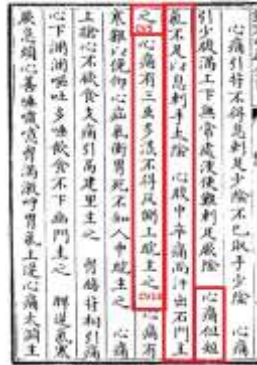 心痛引背不得息刺足少陰不已取手少陰 心痛
引少腹滿上下無常處溲便難刺足厥陰 心痛但短
氣不足以息刺手太陰 心腹中卒痛而汗出石門主
之 心痛有三蟲多涎不得反側上脘主之 心痛有
寒難以俛仰心疝氣衝胃死不知人中脘主之 心痛
上搶心不欲食支痛引鬲建里主之 胷脅背相引痛
心下溷溷嘔吐多唾飲食不下幽門主之 脾逆氣寒
厥急煩心善唾噦噫胷滿激呼胃氣上逆心痛太淵主